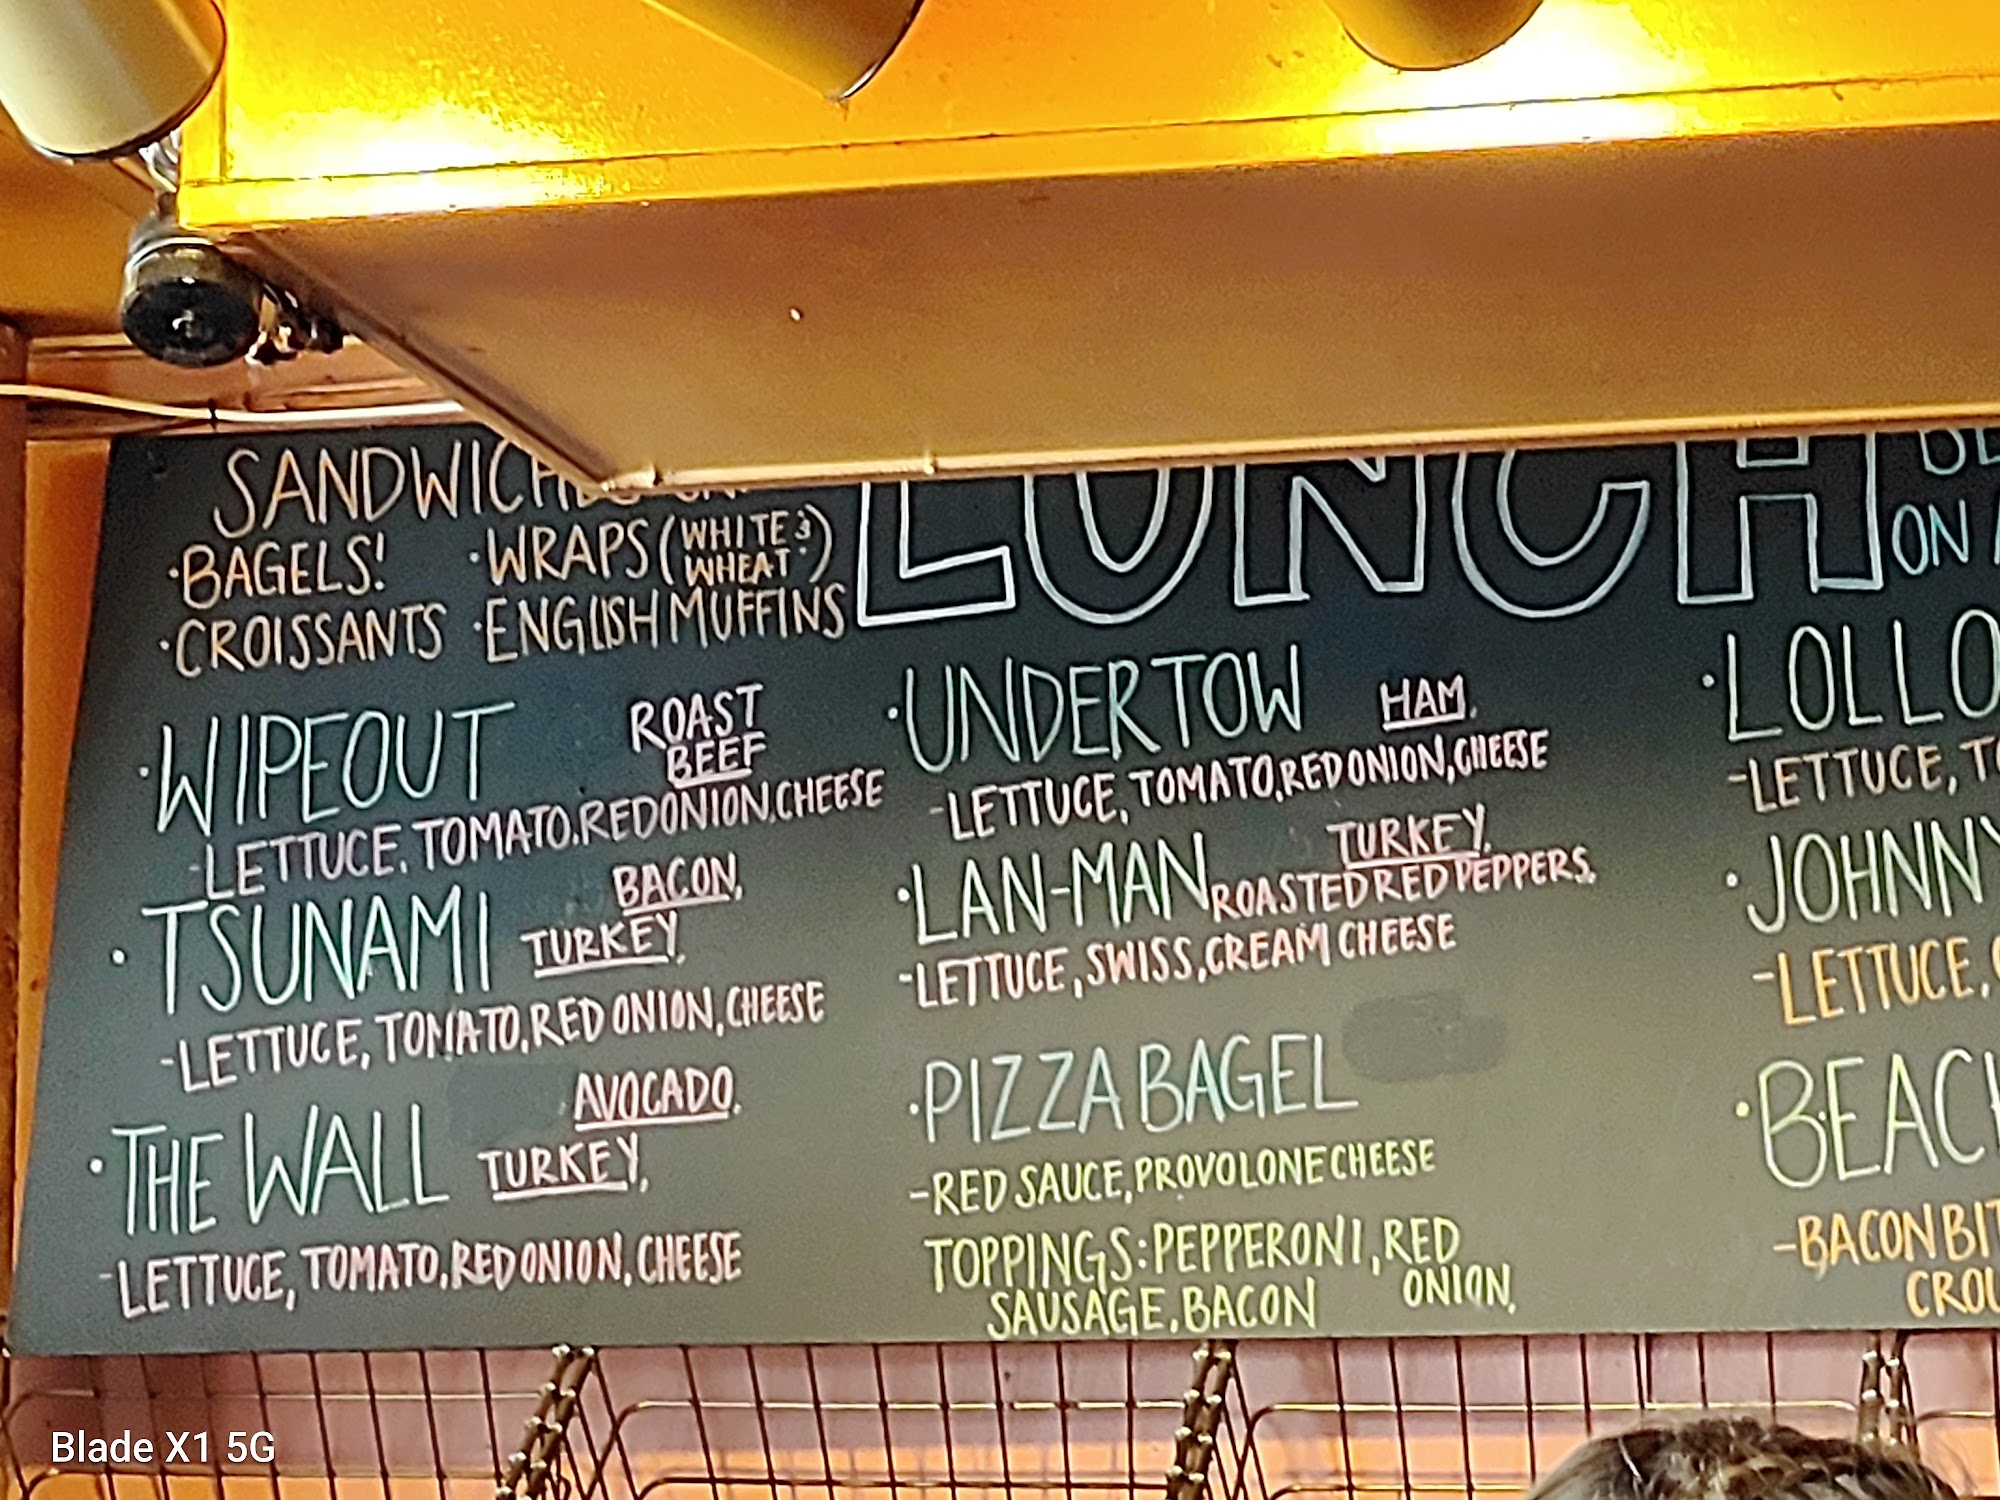 SANDWICHES
·BAGELS! ·WRAPS (WHITE & WHEAT)
·CROISSANTS ·ENGLISH MUFFINS
LUNCH
ON
·WIPEOUT ROAST BEEF
-LETTUCE, TOMATO, RED ONION, CHEESE
·TSUNAMI BACON, TURKEY,
-LETTUCE, TOMATO, RED ONION, CHEESE
·THE WALL AVOCADO, TURKEY,
-LETTUCE, TOMATO, RED ONION, CHEESE
·UNDERTOW HAM,
-LETTUCE, TOMATO, RED ONION, CHEESE
·LAN-MAN TURKEY, ROASTED RED PEPPERS,
-LETTUCE, SWISS, CREAM CHEESE
·PIZZA BAGEL
-RED SAUCE, PROVOLONE CHEESE
TOPPINGS: PEPPERONI, RED ONION,
SAUSAGE, BACON
·LOLLO
-LETTUCE,
·JOHNNY
-LETTUCE,
·BEACH
-BACON BIT
CROU
Blade X1 5G